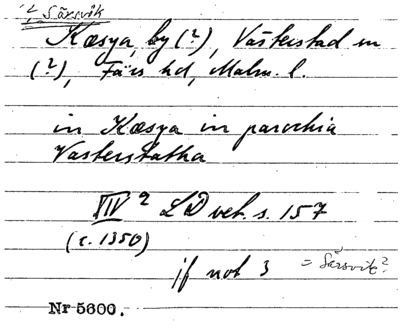 ? Särsvik
Kæsya, by (?), Västerstad sn
(?), Färs hd, Malm. l.
in Kæsya in parochia
Vasterstatha
XIV 2 LÐ vet. s. 157
(c. 1350)
jf not 3 = Särsvik?
Nr 5600.